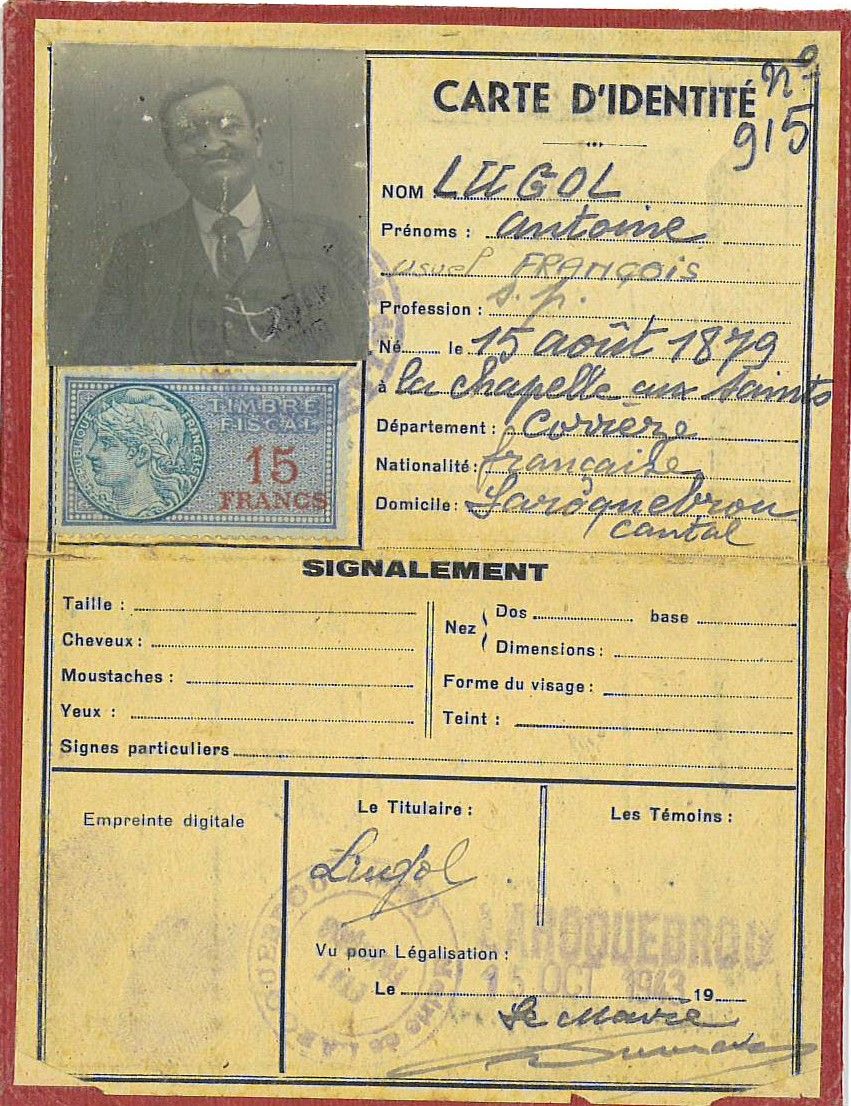 CARTE D'IDENTITÉ
nº
915
NOM LUGOL
Prénoms : antoine
usuel FRANÇOIS
Profession : s. p.
Né le 15 août 1879
à la chapelle aux saints
Département : Corrèze
Nationalité : française
Domicile : Laroquebrou
cantal
RÉPUBLIQUE FRANÇAISE
TIMBRE
FISCAL
15
FRANCS
SIGNALEMENT
Taille :
Cheveux :
Moustaches :
Yeux :
Signes particuliers
Nez Dos base
Dimensions :
Forme du visage :
Teint :
Empreinte digitale
Le Titulaire :
Lugol
Les Témoins :
Vu pour Légalisation :
LAROQUEBROU
15 OCT 1943
Le 19
Le Maire
Mairie de LAROQUEBROU